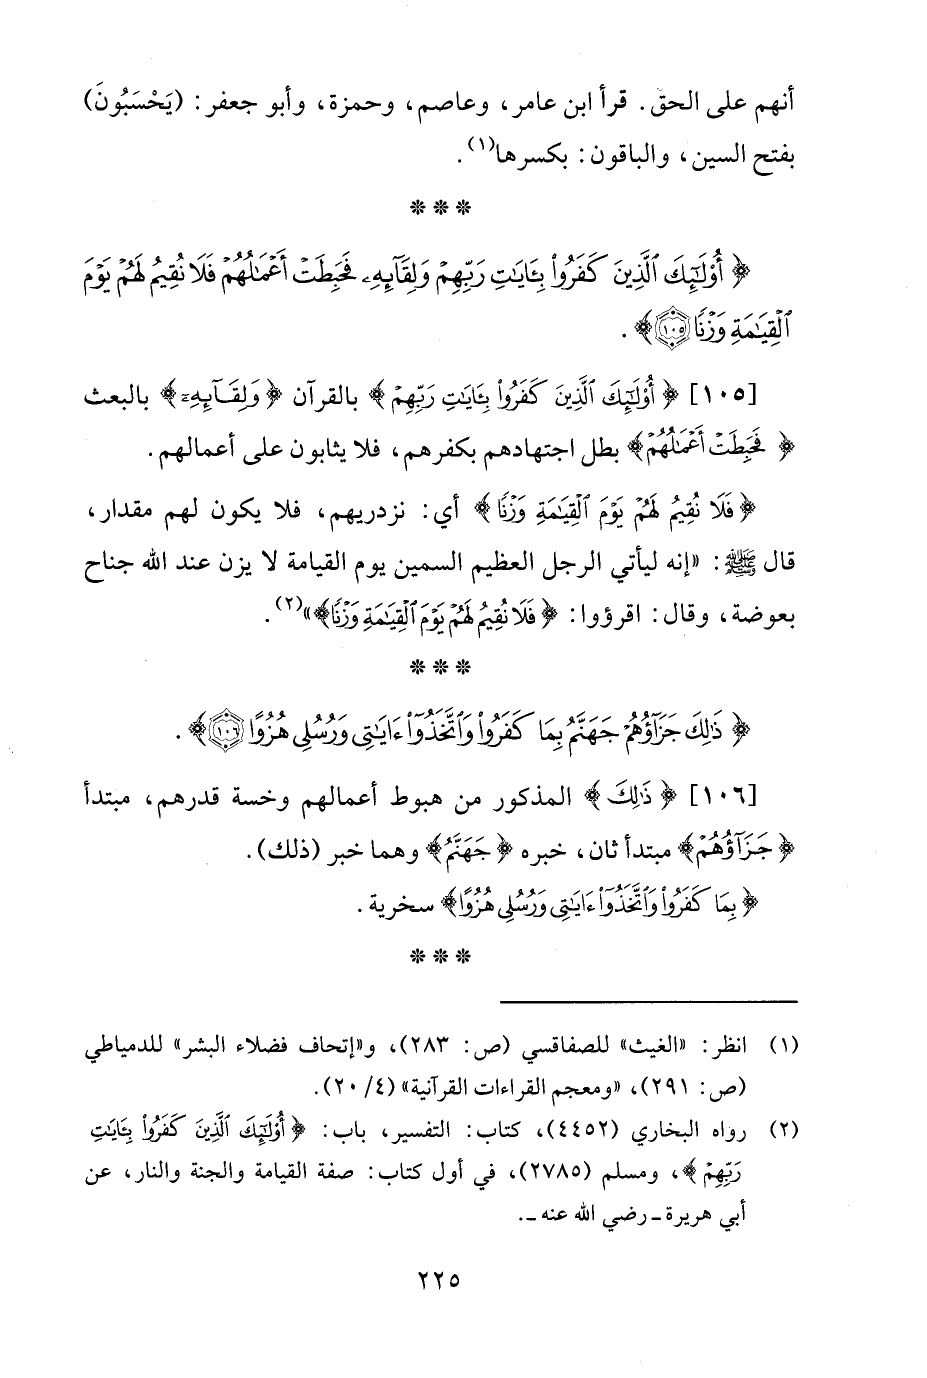 أنهم على الحق. قرأ ابن عامر، وعاصم، وحمزة، وأبو جعفر: (يَحْسَبُونَ)
بفتح السين، والباقون: بكسرها(١).
* * *
﴿ أُوْلَٰٓئِكَ ٱلَّذِينَ كَفَرُواْ بِـَٔايَٰتِ رَبِّهِمْ وَلِقَآئِهِۦ فَحَبِطَتْ أَعْمَٰلُهُمْ فَلَا نُقِيمُ لَهُمْ يَوْمَ
ٱلْقِيَٰمَةِ وَزْنًا ١٠٥﴾.
[١٠٥] ﴿ أُوْلَٰٓئِكَ ٱلَّذِينَ كَفَرُواْ بِـَٔايَٰتِ رَبِّهِمْ﴾ بالقرآن ﴿وَلِقَآئِهِۦ﴾ بالبعث
﴿ فَحَبِطَتْ أَعْمَٰلُهُمْ﴾ بطل اجتهادهم بكفرهم، فلا يثابون على أعمالهم.
﴿فَلَا نُقِيمُ لَهُمْ يَوْمَ ٱلْقِيَٰمَةِ وَزْنًا﴾ أي: نزدريهم، فلا يكون لهم مقدار،
قال ﷺ: «إنه ليأتي الرجل العظيم السمين يوم القيامة لا يزن عند الله جناح
بعوضة، وقال: اقرؤوا: ﴿فَلَا نُقِيمُ لَهُمْ يَوْمَ ٱلْقِيَٰمَةِ وَزْنًا﴾»(٢).
* * *
﴿ ذَٰلِكَ جَزَآؤُهُمْ جَهَنَّمُ بِمَا كَفَرُواْ وَٱتَّخَذُوٓاْ ءَايَٰتِى وَرُسُلِى هُزُوًا ١٠٦﴾.
[١٠٦] ﴿ ذَٰلِكَ ﴾ المذكور من هبوط أعمالهم وخسة قدرهم، مبتدأ
﴿جَزَآؤُهُمْ﴾ مبتدأ ثان، خبره ﴿جَهَنَّمُ﴾ وهما خبر (ذلك).
﴿ بِمَا كَفَرُواْ وَٱتَّخَذُوٓاْ ءَايَٰتِى وَرُسُلِى هُزُوًا﴾ سخرية.
* * *
(١) انظر: «الغيث» للصفاقسي (ص: ٢٨٣)، و«إتحاف فضلاء البشر» للدمياطي
(ص: ٢٩١)، «ومعجم القراءات القرآنية» (٤/ ٢٠).
(٢) رواه البخاري (٤٤٥٢)، كتاب: التفسير، باب: ﴿ أُوْلَٰٓئِكَ ٱلَّذِينَ كَفَرُواْ بِـَٔايَٰتِ
رَبِّهِمْ﴾، ومسلم (٢٧٨٥)، في أول كتاب: صفة القيامة والجنة والنار، عن
أبي هريرة ـ رضي الله عنه ـ.
٢٢٥